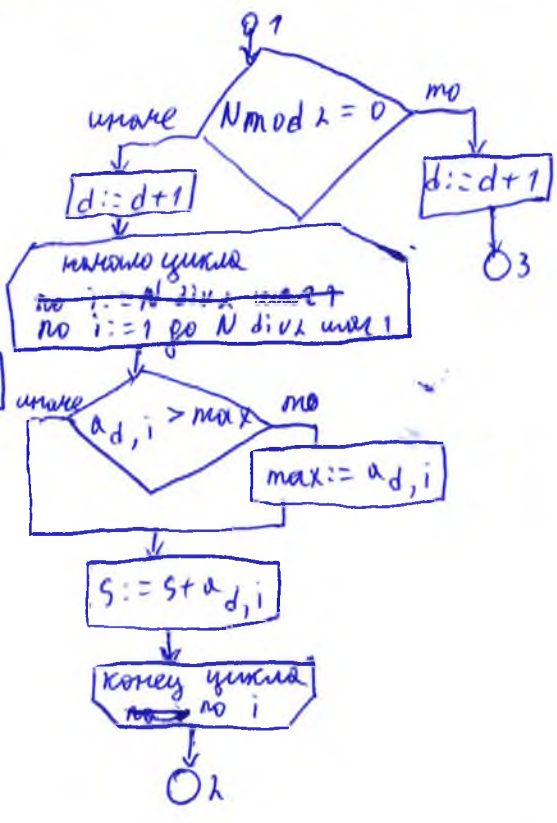 1
N mod 2 = 0
иначе
то
d := d+1
d := d+1
3
начало цикла
по i := 1 до N div 2 шаг 1
иначе
a d, i > max
то
max := a d, i
S := S + a d, i
конец цикла
по i
2